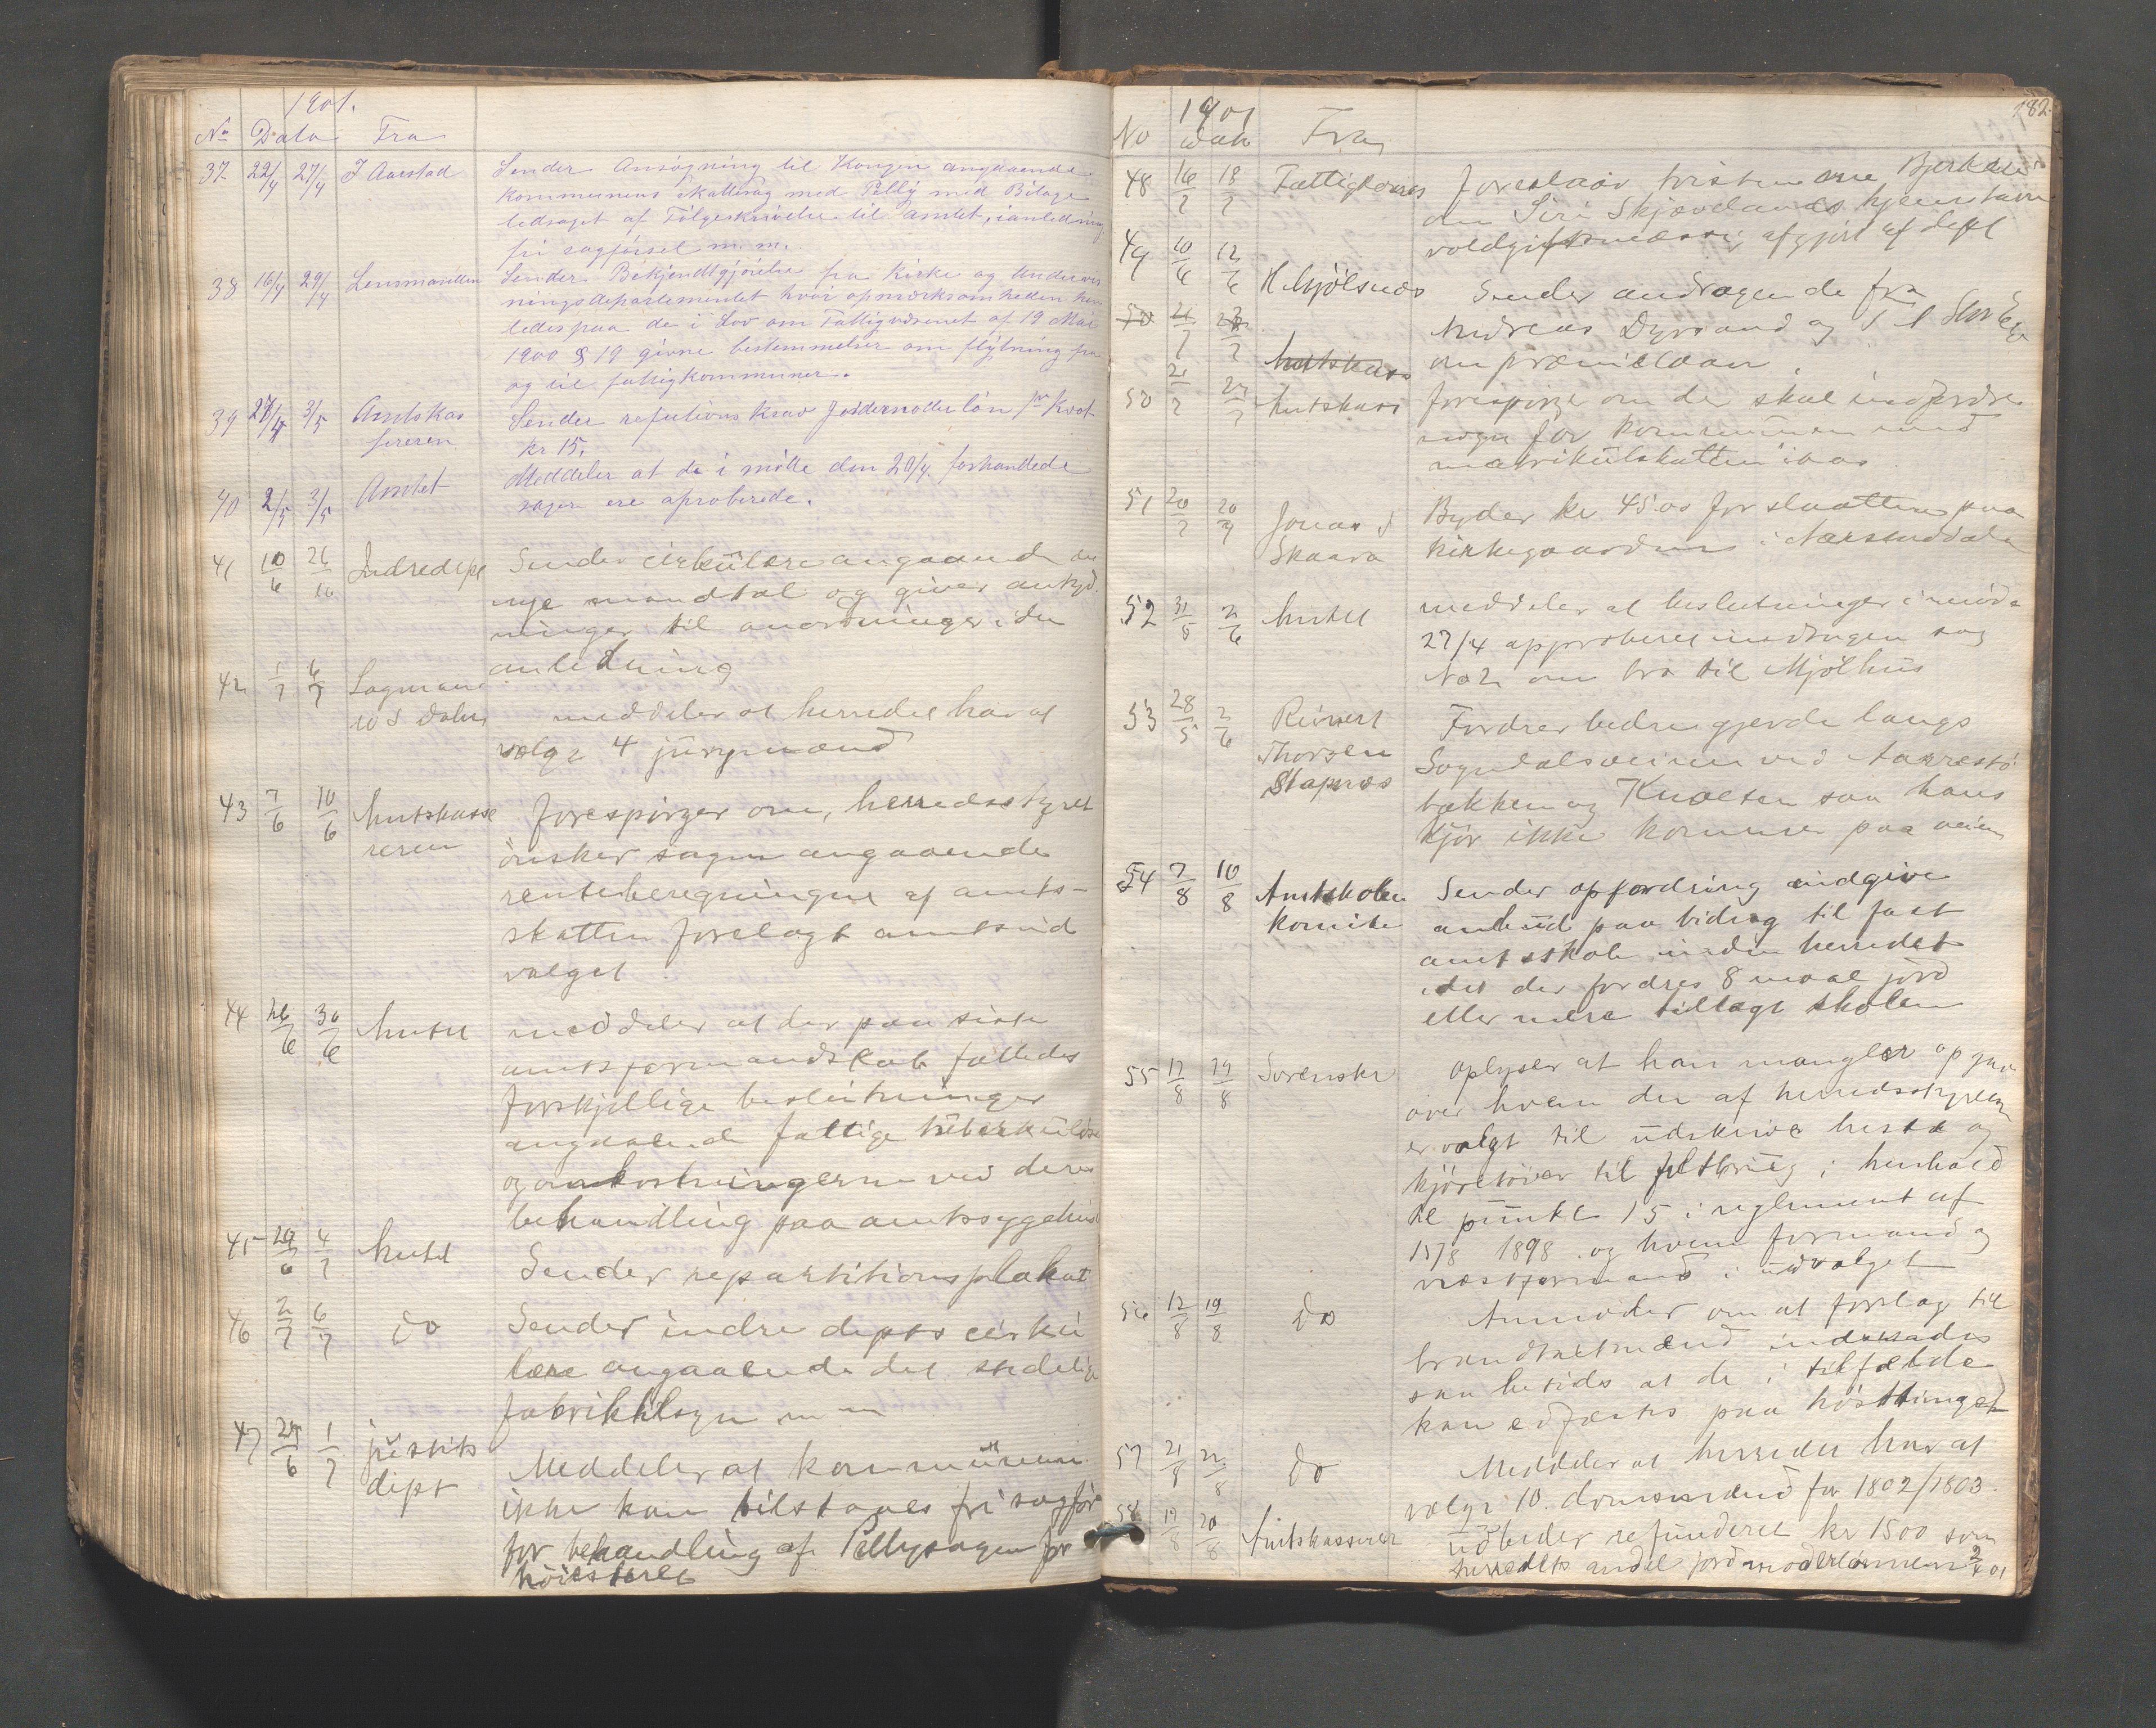 1901.
No Dato Fra
37 22/4 27/4 J Aarstad Sender Ansøgning til Kongen angaaende
kommunens skattesag med Pelly med Bilage
ledsaget af Følgeskrivelse til amtet, i anledning
fri sagførsel m. m.
38 16/4 29/4 Lensmanden Sender Bekjendtgjørelse fra Kirke og Undervis
ningsdepartementet hvor opmærksomheden hen
ledes paa de i Lov om Fattigvæsenet af 19 Mai
1900 § 19 givne bestemmelser om flytning fra
og til fattigkommuner.
39 27/4 3/5 Amtskas Sender refusions krav Jordemoder løn pr Kvot
sereren kr 15.
40 2/5 3/5 Amtet Meddeler at de i møtte den 20/4 forhandlede
sager ere aproberede.
41 10/6 Indredept Sender cirkülære angaaende de
nye mandtal og giver antyd
ninger til anordninger i den
anledning
42 1/7 6/7 Lagmand
meddeler at herredet har at
vælge 4 jürymænd
43 7/6 10/6 Amtskasse forespørger om, herredsstyret
reren ønsker sagen angaaende
renteberegningene af amts-
skatten forelagt amtsüd
valget
44 26/6 30/6 Amtet meddeler at der paa siste
amtsformandskab fattedes
forskjellige beslütninger
angaaende fattige tüberküløse
og omkostningerne ved deres
behandling paa amtssygehüs
45 29/6 4/7 Amtet Sender repartitionsplakat
46 2/7 6/7 do Sender indre depts cirkü
lære angaaende det stedelige
fabriktilsyn m m
47 29/6 1/7 jüstits
dept Meddeler at kommünen
ikke kan tilstaaes fri sagfør
for behandling af Pellysagen for
høiesteret
182
1901
No Dato Fra
48 16/7 18/7 Fattigkomis foreslaar tvisten m Bjerkrem
om Siri Skjævelands hjemstavn
voldgiftsmæssig afgjort af dept
49 10/6 12/6 H Mjølsnes Sender andragende fra
Andreas Dyrsand og
om præmielaan
50 Amtskass forespørge om der skal indfordres
noget for kommünen med
matrikülskatten i aar
51 20/7 20/7 Jonas
Skaara Byder kr 45.00 for slaatten paa
kirkegaarden i
52 31/5 2/6 Amtet meddeler at beslutninger i møde
27/4 approberet undtagen sag
No 2 om bro til Mjølhüs
53 28/5 2/6 Reinert
Thorsen
Stapnes Fordrer bedre gjerde langs
Sogndalsveien ved Aarrestø
bækken og Knolten saa hans
kjør ikke kommer paa veien
54 7/8 10/8 Amtskolen
komite Sender opfordring indgive
anbüd paa bidrag til fast
amtsskole inden herredet
idet der fordres 8 maal jord
eller mere tillagt skolen
55 17/8 19/8 Sorenskr oplyser at han mangler opgav
over hvem der af herredsstyret
er valgt til üdskrive heste og
kjøretøier til feltbrüg i henhold
til pünkt 15 i reglement af
15/8 1898. og hvem formand og
næstformand i üdvalget
56 12/8 19/8 Do Anmoder om at forslag til
brandtakstmænd indsendes
saa betids at de i tilfælde
kan edfæstes paa høsttinget
57 21/8 22/8 Do Meddeler at herredet har at
vælge 10. domsmænd for 1802/1803.
58 19/8 20/8 Amtskasserer üdbeder refünderet kr 1500 som
herredets andel jordmoderlønnen 2/4 01